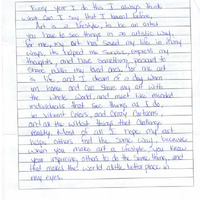 Every year I do this I always think
what can I say that I haven't before,
Art is a lifestyle, to be an artist
you have to see things in an artistic way,
for me, my art has saved my life in many
ways, its helped me survive, express my
thoughts, and have something personal to
share with my loved ones, for me art
is life and I dream of a day when
im home and can share my art with
the whole world, and meet like minded
individuals that see things as I do,
in vibrant colors, and crazy cartoons,
and all the wildest things that challenge
reality. Most of all I hope my art
helps others feel the same way, because
when you make art a lifestyle you know
your inspiring others to do the same thing, and
that makes the world a little better place in
my eyes.